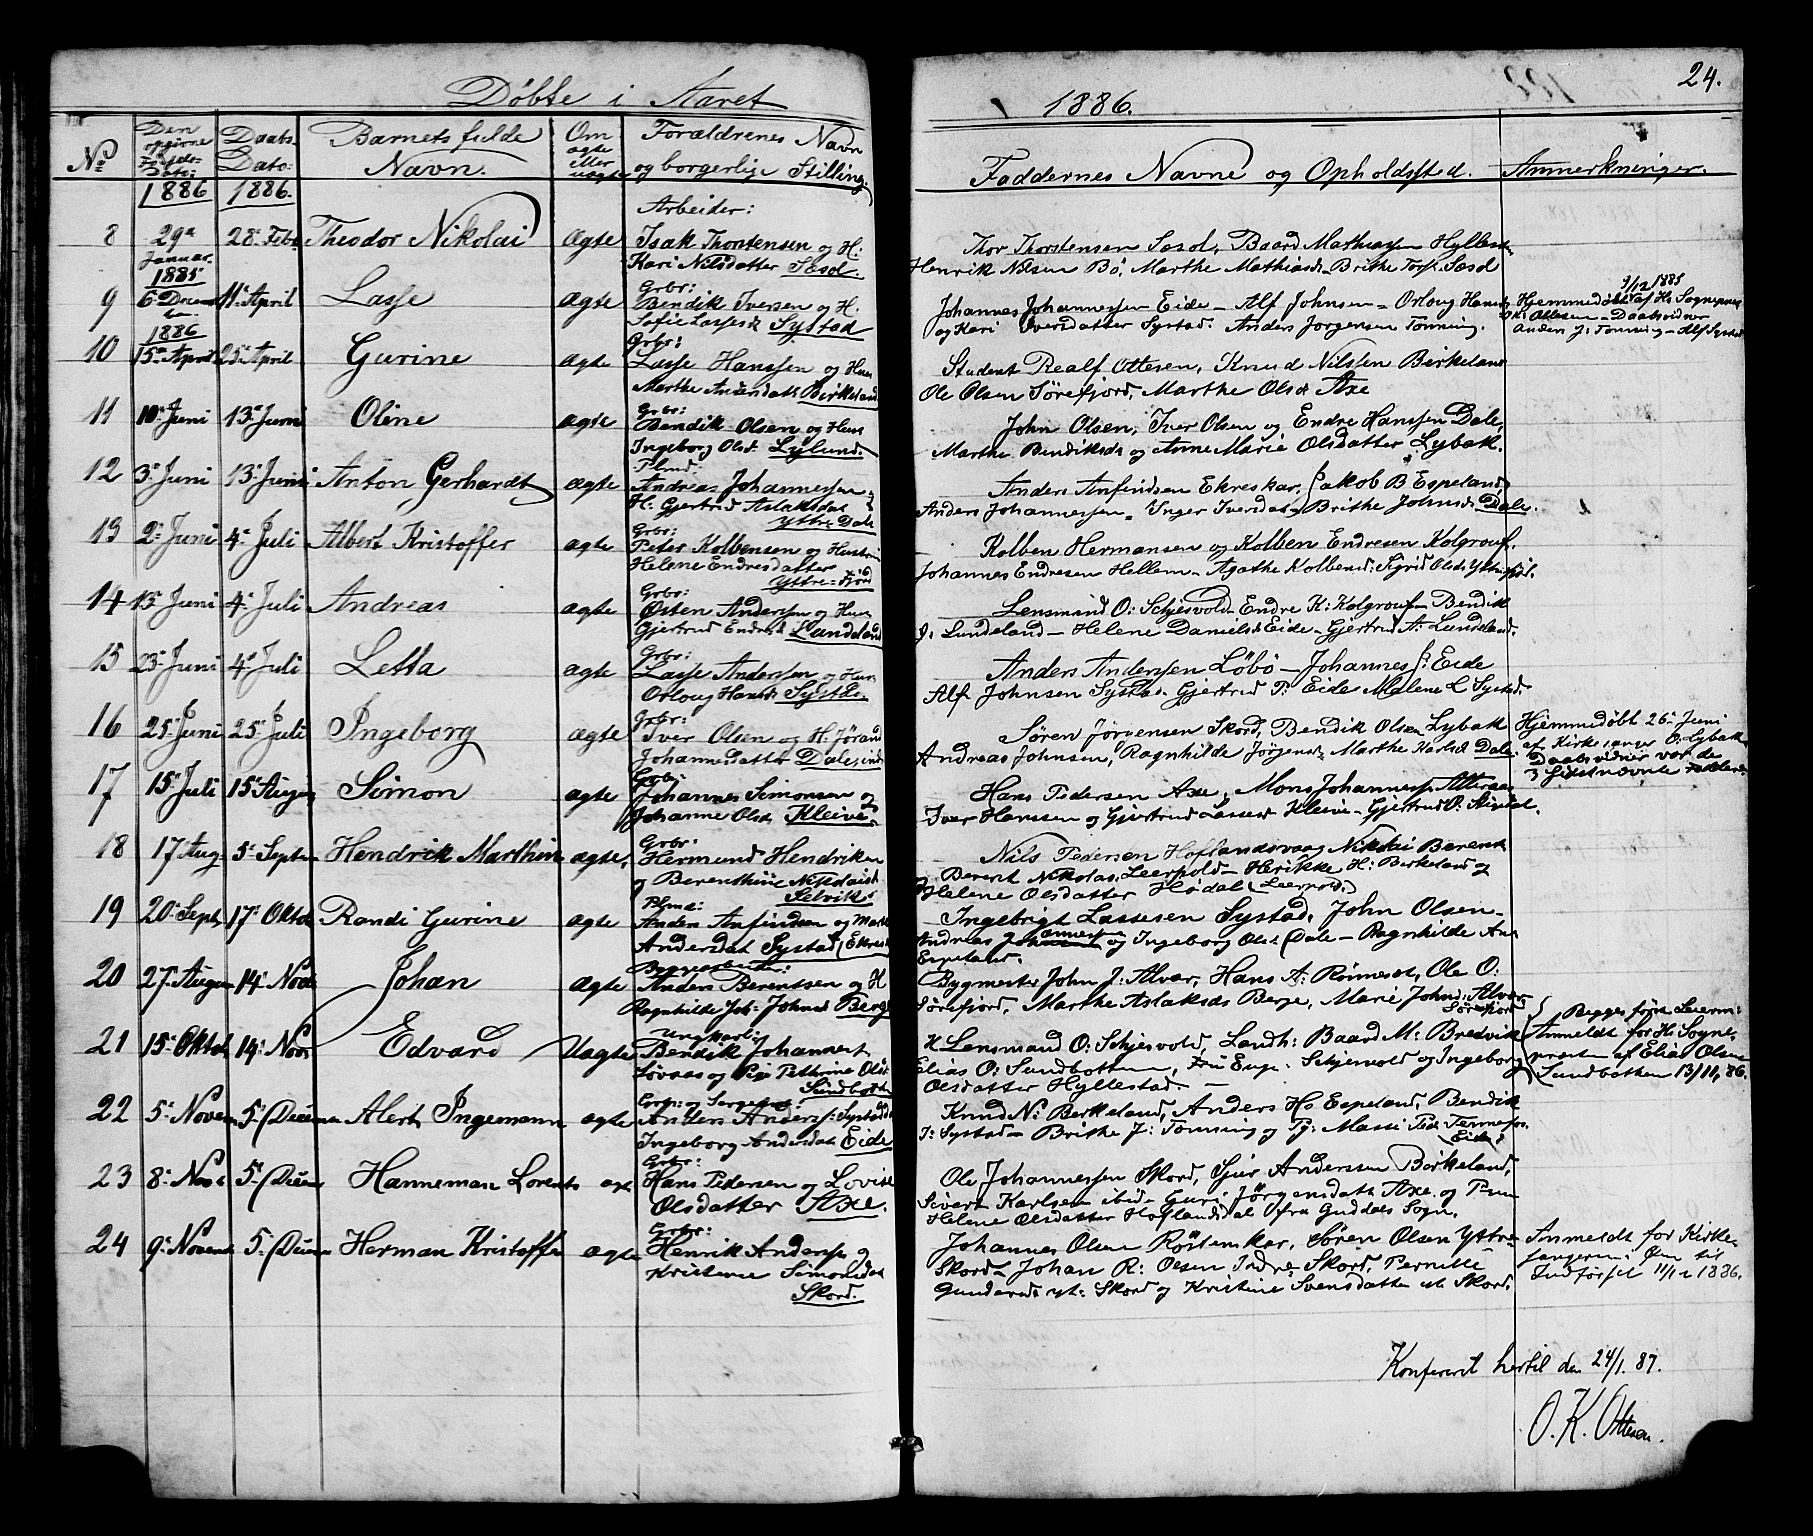 Døbte i Aaret
1886.
24.
No
Den opgivne Fødsels-Dato:
Daabs-Dato:
Barnets fulde Navn.
Om ægte eller uægte
Forældrenes Navn og borgerlige Stilling.
Faddernes Navne og Opholdssted.
Anmerkninger.
1886 1886.
Arbeider:
8 29 Januar 28 Febr Theodor Nikolai Ægte Isak Thorstensen og H.
Kari Nilsdatter Sæsol.
Thor Thorstensen Sæsol, Baard Mathiassen Hyllest
Henrik Nilsen Bø, Marthe Mathiasd. Brithe Torf. Sæsol
1885
9 6 Decem 11 April Lasse Ægte Grbr: Bendik Iversen og H.
Sofie Lassesd. Systad
Johannes Johannessen Eide - Alf Johnsen - Orloug Hansd.
og Kari Iversdatter Systad. Anders Jørgensen Tønning.
9/12 1885
Hjemmedøbt af Hr Sognepræst
Ottesen - Daabsvidner
Anders J: Tønning - Alf Systad
1886
10 15 April 25 April Gurine ægte Grbr: Lasse Hanssen og Hu
Marthe Andersdatt: Birkeland
Student Realf Ottesen, Knud Nilssen Birkeland
Ole Olsen Sørefjord, Marthe Olsd. Axe
11 10 Juni 13 Juni Oline ægte Grbr: Bendik Olsen og Hus
Ingeborg Olsd. Lylund.
John Olsen, Iver Olsen og Endre Hanssen Dale,
Marthe Bendiksd. og Anne Marie Olsdatter Lybæk.
12 3 Juni 13 Juni Anton Gerhardt ægte Plmd: Andreas Johannessen
H. Gjertrud Aslaksdat
Yttre Dale
Anders Anfindsen Ekreskar, Jakob B Espeland,
Anders Johannessen - Inger Iversdat, Brithe Johnsd. Dale.
13 2 Juni 4 Juli Albert Kristoffer ægte Grbr: Peter Kolbensen og Hustru
Helene Endresdatter
Yttre Fjord
Kolben Hermansen og Kolben Endresen Kolgrouf.
Johannes Endresen Hellem - Agathe Kolbensd. Sigrid Olsd.
14 15 Juni 4 Juli Andreas ægte Grbr: Østen Anderssen og Hus
Gjertrud Endresd. Lundeland
Lensmand O: Schjesvold - Endre K: Kolgrouf - Bendik
J: Lundeland - Helene Danielsd. Eide - Gjertrud A: Lundeland.
15 23 Juni 4 Juli Letta ægte Grbr: Lasse Anderssen og Hus
Orloug Hansd. Systad.
Anders Andersen Løbø - Johannes J: Eide
Alf Johnsen Systad. Gjertrud P: Eide Malene L Systad.
16 25 Juni 25 Juli Ingeborg ægte Grbr: Iver Olsen og H. Jørand
Johannesdatter Dale
Søren Jørgensen Skord, Bendik Olsen Lybæk
Andreas Johnsen, Ragnhilde Jørgensd. Marthe Karlsd. Dale
Hjemmedøbt 26 Juni
af Kirkesanger O: Lybæk
Daabsvidner var de
3 sidstnævnte Faddere
17 15 Juli 15 August Simon ægte Grbr: Johannes Simonsen og
Johanne Olsd. Kleive.
Hans Pedersen Axe, Mons Johannessen Atteraas
Iver Hanssen og Gjertrud Lassesd Kleive - Gjertrud O:
18 17 Aug. 5 Septem Hendrik Marthin ægte. Grbr: Hermund Hendriksen
og Berenthine Nikolaisd.
Selvik
Nils Pedersen Hoflandsvaag Nikolai Berent
Berent Nikolas. Leerpold - Herikke H: Birkeland og
Helene Olsdatter Hødal (Leerpold.)
19 20 Sept 17 Oktob Randi Gurine ægte Plmd: Anders Anfindsen og Marthe
Andersdat Systad (Ekresk
Ingebrigt Lassesen Systad, John Olsen -
Andreas Johannessen og Ingeborg Olsd. Dale - Ragnhilde An
Espeland.
20 27 August 14 Nov Johan ægte Anders Berentsen og H
Ragnhilde Joh: Johnsd Berg
Bygmester John J: Alvær, Hans A: Rönneset, Ole O:
Sørefjord, Marthe Aslaksds Berge, Marie Johnsd: Alvær
Sørefjord
21 15 Oktob 14 Nov Edvard Uægte Ungkarl: Bendik Johannest
Løvaas og Pige Pethrine Olsd
Sundbotten
H Lensmand O: Schjesvold, Landh: Baard M: Bredvik
Elias O: Sundbotten, Fru Eug: Schjesvold og Ingeborg
Olsdatter Hyllestad. -
Begges første Leierm:
Anmeldt for Hr Sogne-
præst af Elias Olsen
Sundbotten 13/11, 86.
22 5 Novem 5 Decem Alert Ingemann ægte Grbr: og Sergeant Anders Anderss: Systad
Ingeborg Andersdat Eide
Knud N: Berkeland, Anders Hs Espeland, Bendik
I: Systad - Brithe J: Tønning og Pg: Massi Ped: Tennefos.
Eide.
23 8 Nov 5 Decem Hanneman Lorents ægt Grbr: Hans Pedersen og Lovise
Olsdatter Axe.
Ole Johannessen Skord, Sjur Anderssen Birkeland,
Sivert Karlsen ibid. Guri Jørgensdatt: Axe og P
Helene Olsdatter Hoflandsdal fra Guddals Sogn.
24 9 Novem 5 Decem Herman Kristoffer ægte Grbr: Henrik Anderss og
Kristense Simonsdat
Skord.
Johannes Olsen Röstenskar, Søren Olsen Yttre
Skord - Johan R: Olsen Indre Skord, Pernille
Gundersd. yt: Skord og Kristine Svensdatter yt: Skord.
Anmeldt for Kirke-
sangeren Øen til
Indførsel 11/12 1886.
Konfereret hertil den 24/1. 87.
O. K. Ottesen.